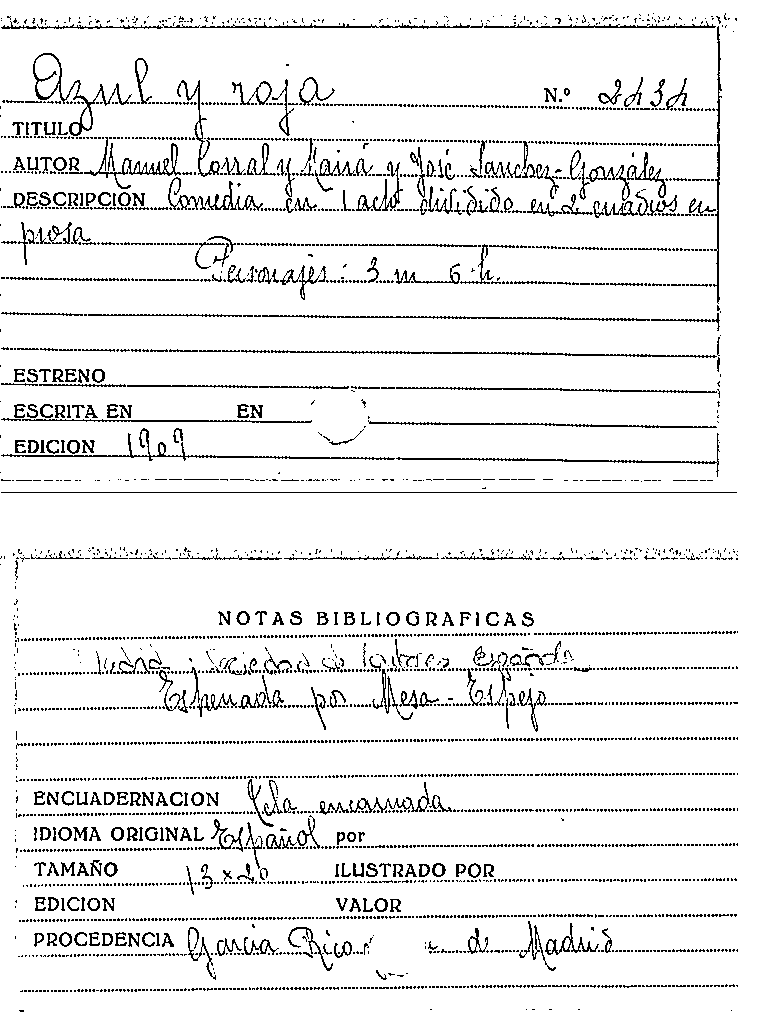 Azul y roja
N.º 2434
TITULO
AUTOR Manuel Corral y Mairá y José Sanchez-González
DESCRIPCIÓN Comedia en 1 acto dividido en 2 cuadros en
prosa
Personajes: 3 m 6 h.
ESTRENO
ESCRITA EN EN
EDICION 1909
NOTAS BIBLIOGRAFICAS
Madrid, Sociedad de Autores Españoles
Estrenada por Mesa-Espejo
ENCUADERNACION Tela encarnada
IDIOMA ORIGINAL Español por
TAMAÑO 13 x 20 ILUSTRADO POR
EDICION VALOR
PROCEDENCIA Garcia Rico de Madrid